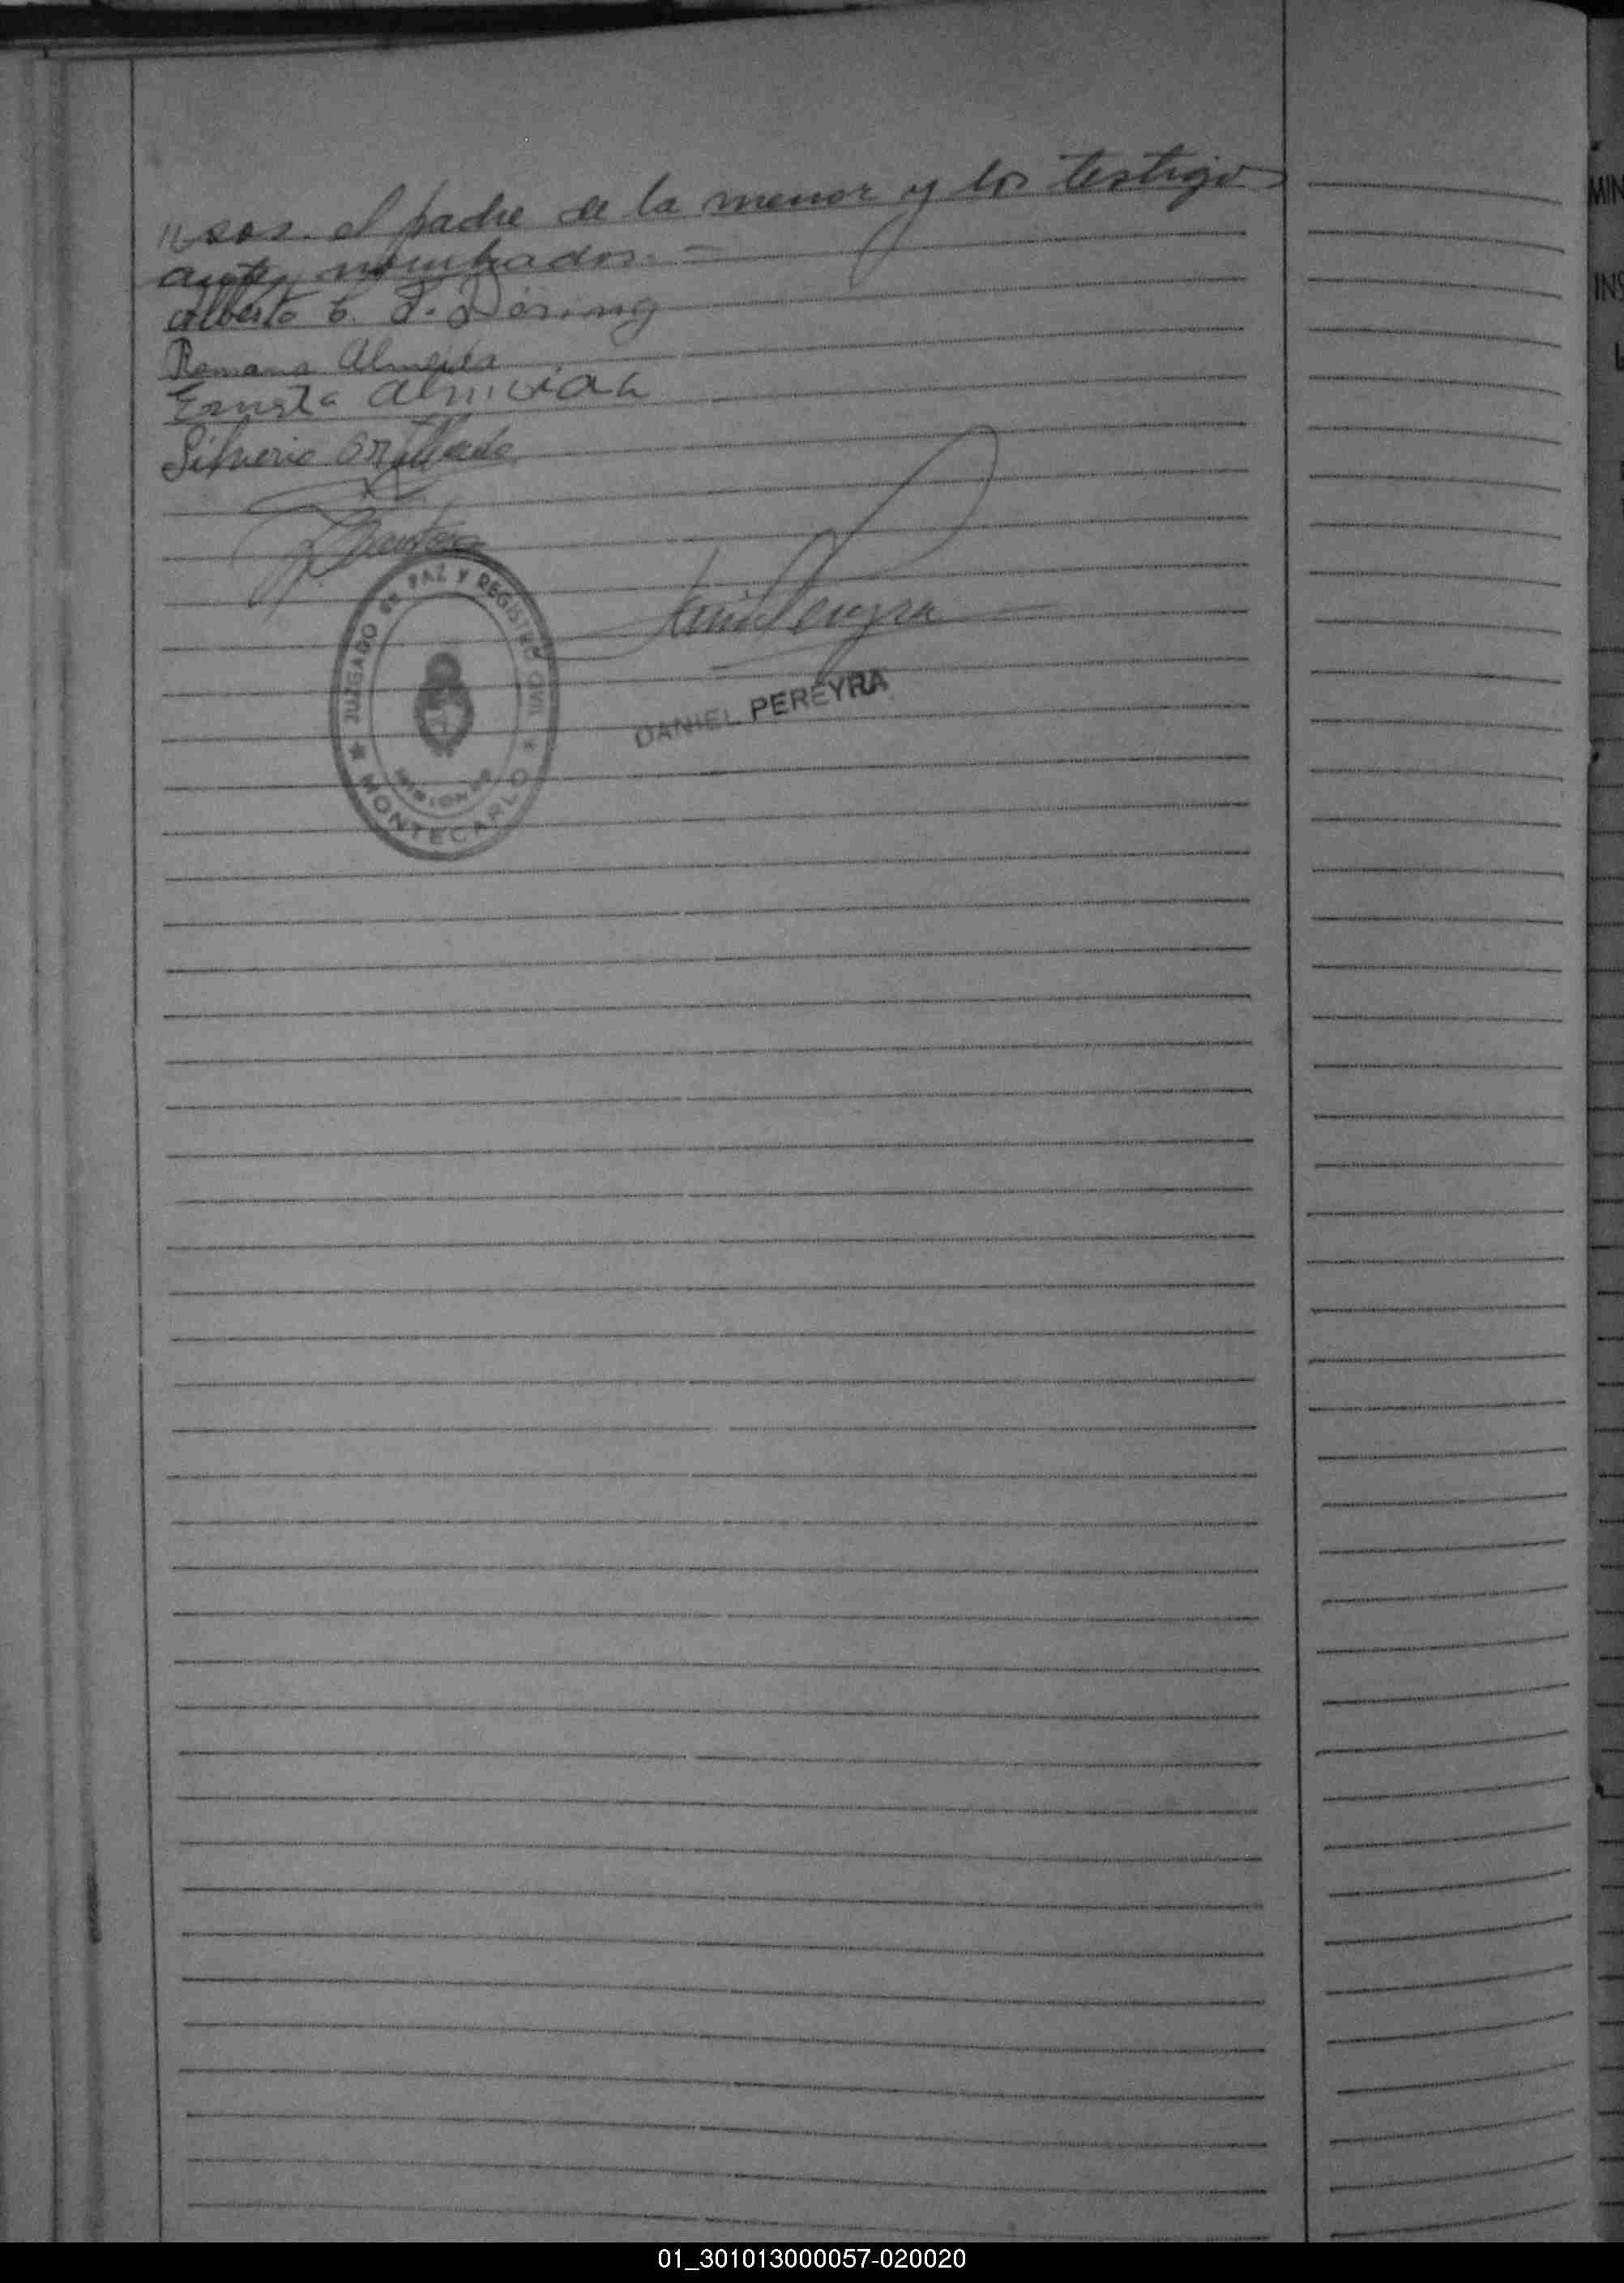 //sos. el padre de la menor y los testigos
antes nombrados. =
Alberto C. F. Döring
Romana Almeida
Ernesto
Silverio
JUZGADO DE PAZ Y REGISTRO CIVIL
MISIONES
MONTECARLO
DANIEL PEREYRA
MIN
INS
01_301013000057-020020